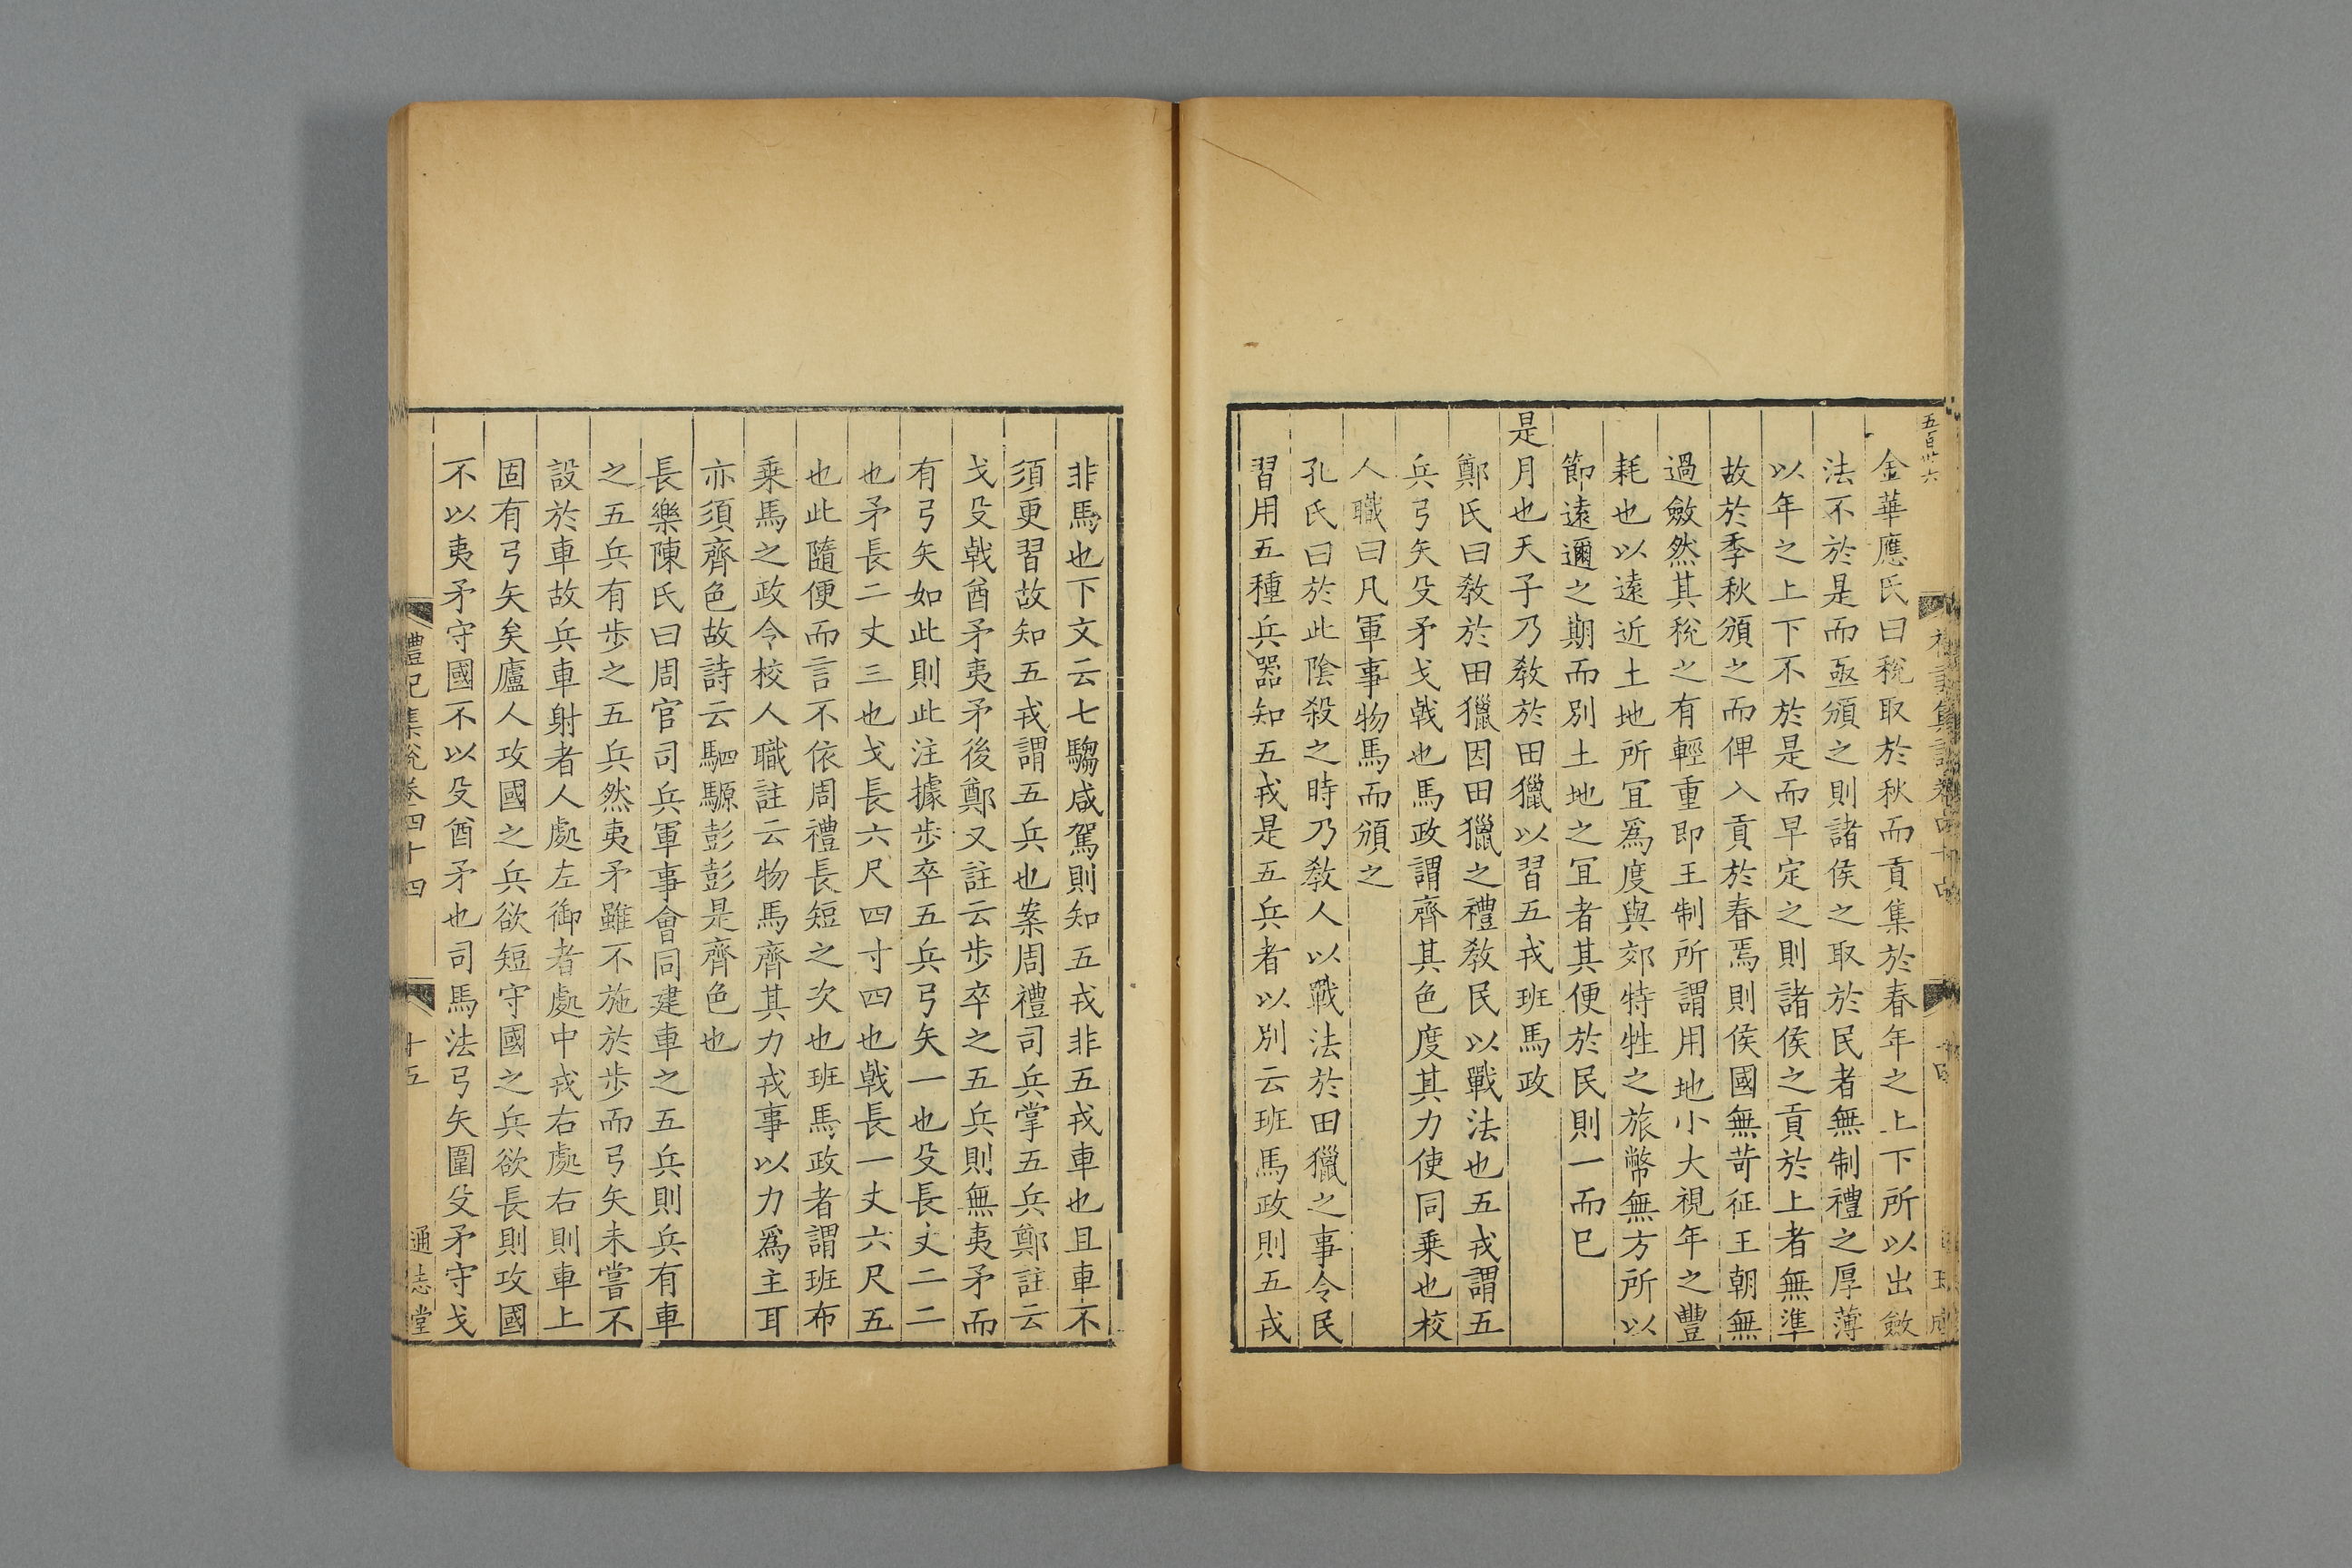 五百卅六
金華應氏曰稅取於秋而貢集於春年之上下所以出斂
法不於是而亟頒之則諸侯之取於民者無制禮之厚薄
以年之上下不於是而早定之則諸侯之貢於上者無準
故於季秋頒之而俾入貢於春焉則侯國無苛征王朝無
過斂然其稅之有輕重即王制所謂用地小大視年之豐
耗也以遠近土地所冝爲度與郊特牲之旅幣無方所以
節遠邇之期而別土地之冝者其便於民則一而巳
是月也天子乃敎於田獵以習五戎班馬政
鄭氏曰敎於田獵因田獵之禮敎民以戰法也五戎謂五
兵弓矢殳矛戈戟也馬政謂齊其色度其力使同乗也校
人職曰凡軍事物馬而頒之
孔氏曰於此陰殺之時乃敎人以戰法於田獵之事令民
習用五種兵器知五戎是五兵者以別云班馬政則五戎
非馬也下文云七騶咸駕則知五戎非五戎車也且車不
須更習故知五戎謂五兵也案周禮司兵掌五兵鄭註云
戈殳戟酋矛夷矛後鄭又註云歩卒之五兵則無夷矛而
有弓矢如此則此注據歩卒五兵弓矢一也殳長丈二二
也矛長二丈三也戈長六尺四寸四也戟長一丈六尺五
也此隨便而言不依周禮長短之次也班馬政者謂班布
乗馬之政令校人職註云物馬齊其力戎事以力爲主耳
亦須齊色故詩云駟騵彭彭是齊色也
長樂陳氏曰周官司兵軍事會同建車之五兵則兵有車
之五兵有歩之五兵然夷矛雖不施於歩而弓矢未嘗不
設於車故兵車射者人處左御者處中戎右處右則車上
固有弓矢矣廬人攻國之兵欲短守國之兵欲長則攻國
不以夷矛守國不以殳酋矛也司馬法弓矢圍殳矛守戈
禮記集說卷四十四
十五
通志堂